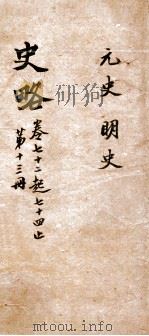 元史 明史
史略
卷七十二起七十四止
第十三冊
www.mtoou.info